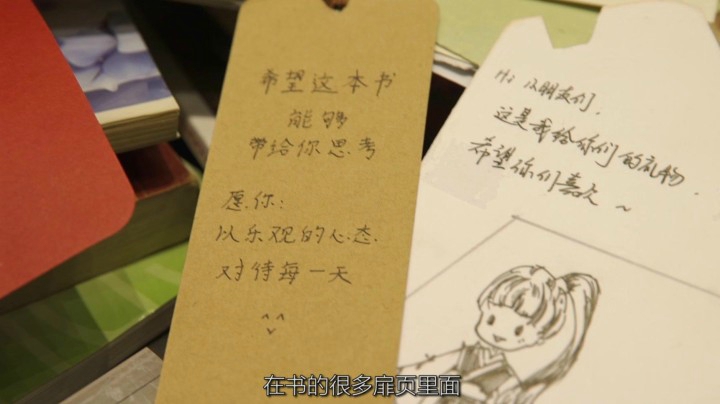 希望这本书
能够
带给你思考
愿你:
以乐观的心态
对待每一天
Hi 小朋友们,
这是我给你们的礼物,
希望你们喜欢~
在书的很多扉页里面